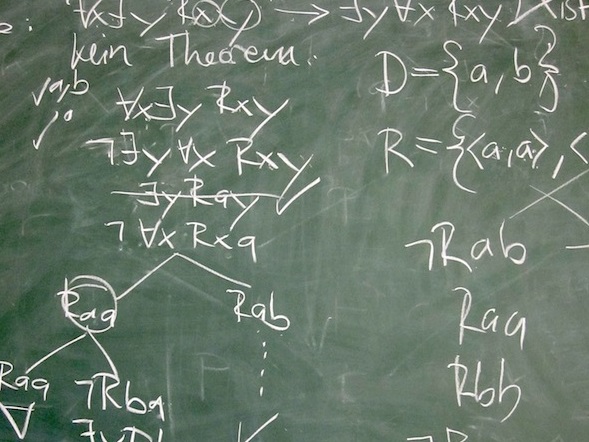 ∀x∃y Rxy → ∃y∀x Rxy ist
kein Theorem.
a,b
∀x∃y Rxy
¬∃y∀x Rxy
∃y Ray
¬∀x Rxa
Raa Rab
¬Rba
D={a,b}
R={<a,a>,<
¬Rab
Raa
Rbb